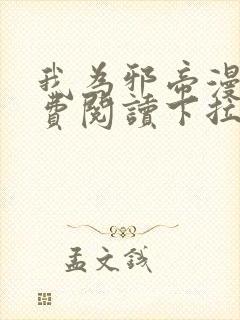 我為邪帝漫
費閱讀下拉
孟文錢